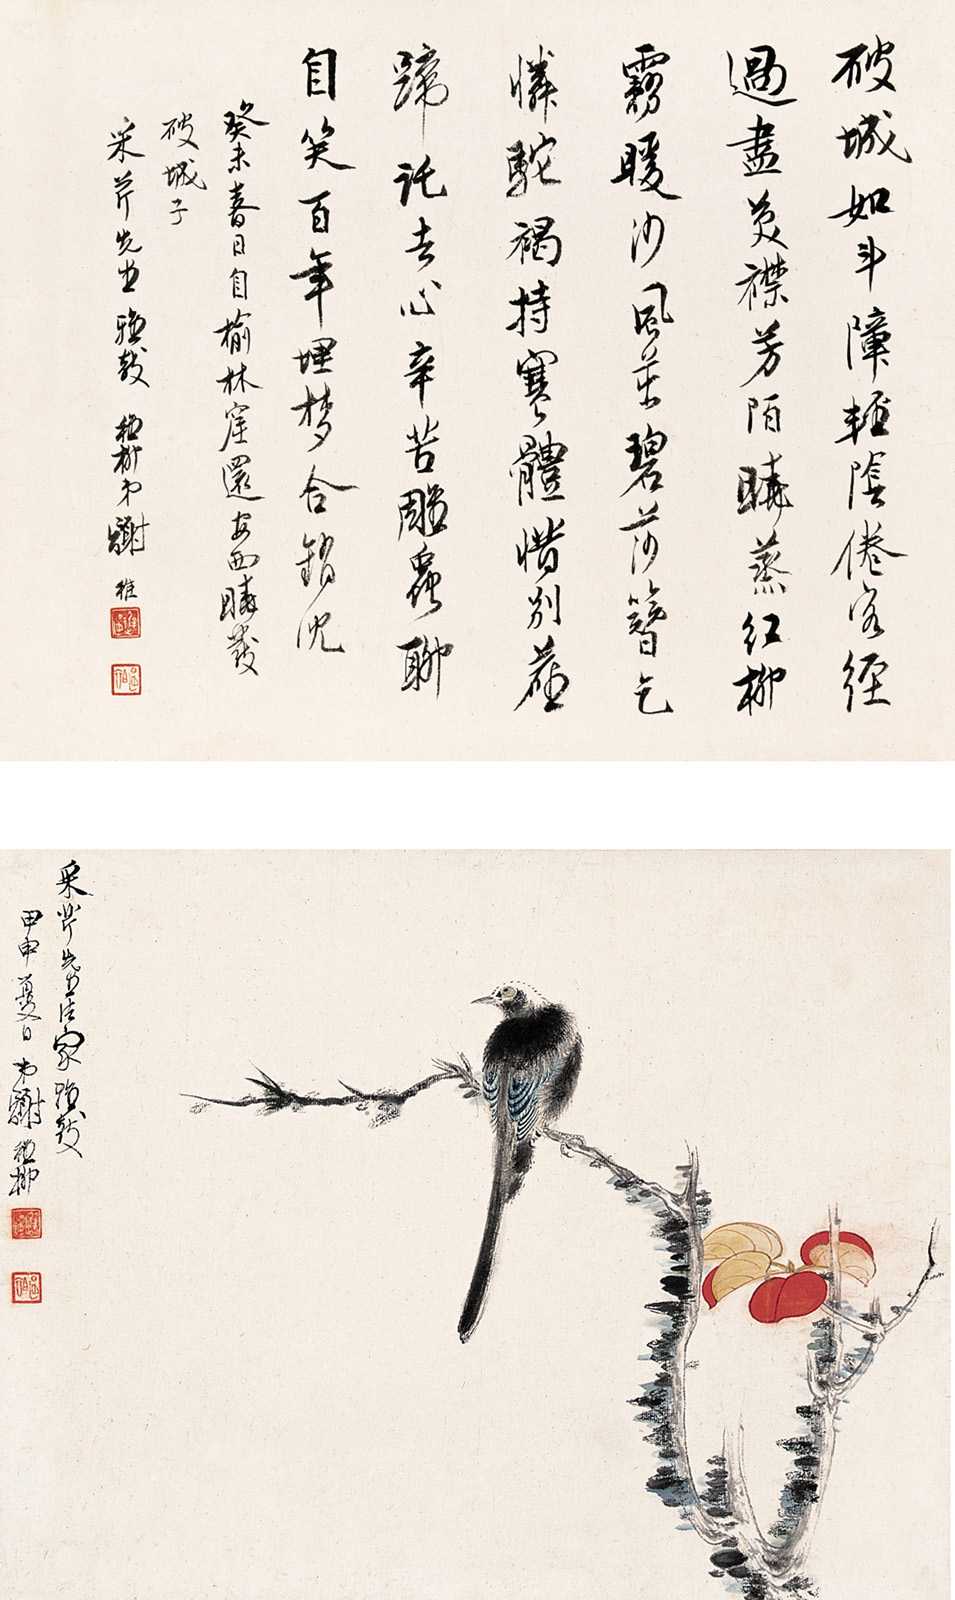 破城如斗障輕陰倦客經
過盡襟芳陌曉蒸紅柳
霧暖沙風碧莎簪乞
憐駝褐持寒體惜別
蹄託去心辛苦雕蟲聊
自笑百年埋夢合銷沈
癸未春日自榆林窟還安西曉發
破城子
采芹先生雅教 稚柳弟謝稚
采芹先生法家雅教
甲申夏日弟謝稚柳